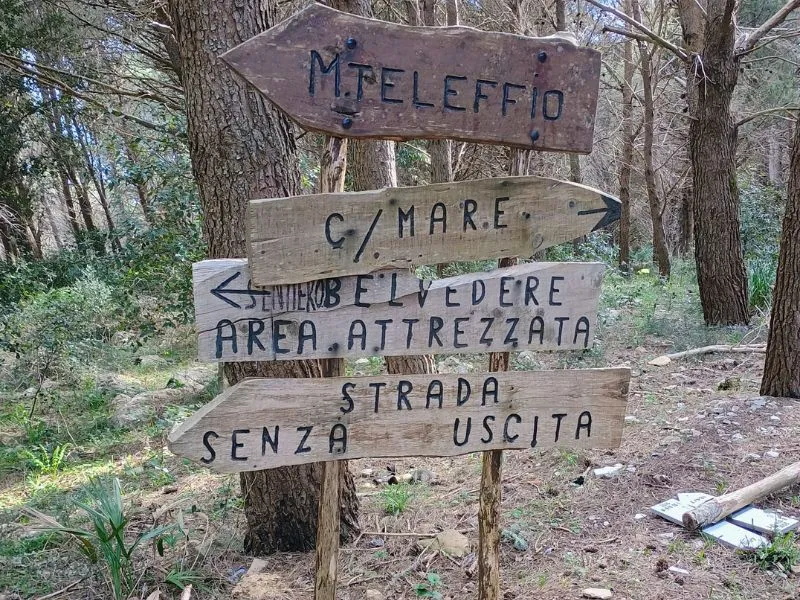 M.TELEFFIO
C/MARE
SENTIERO BELVEDERE
AREA ATTREZZATA
STRADA
SENZA USCITA